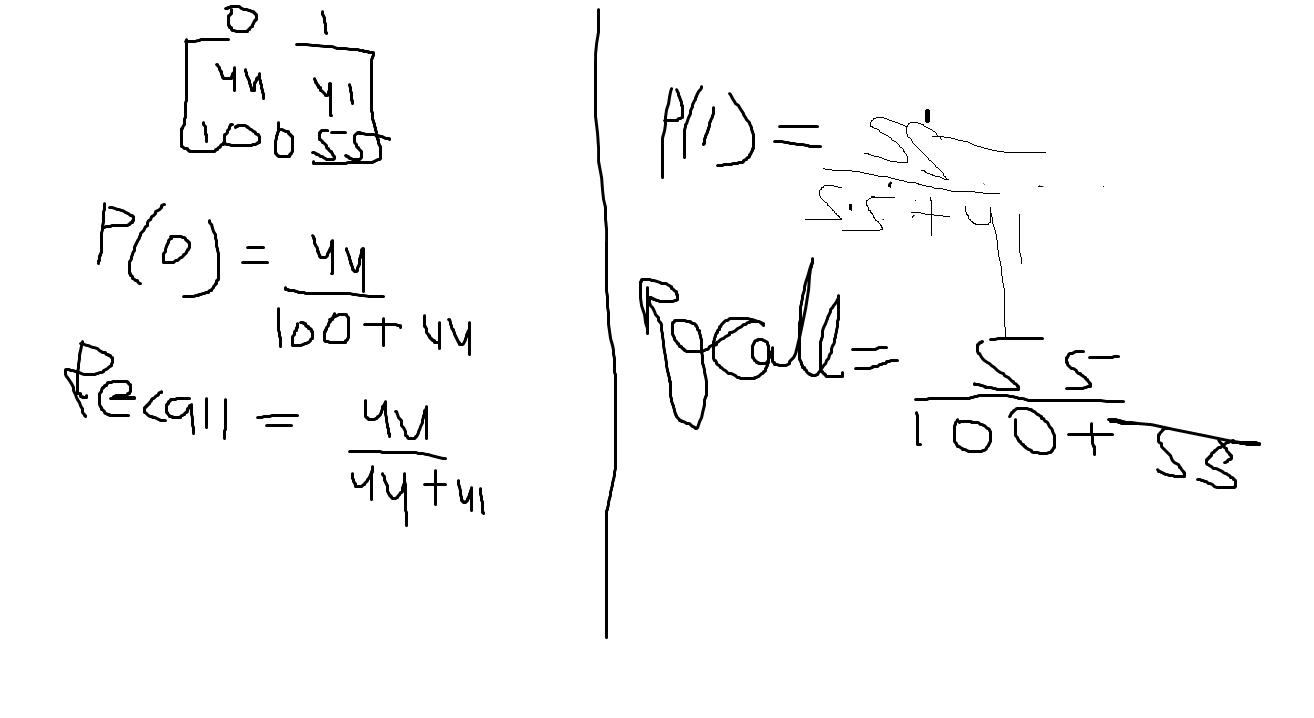 0 1
44 41
100 55
P(0) = 44
100 + 44
Recall = 44
44 + 41
P(1) = 55
55 + 41
Recall = 55
100 + 55